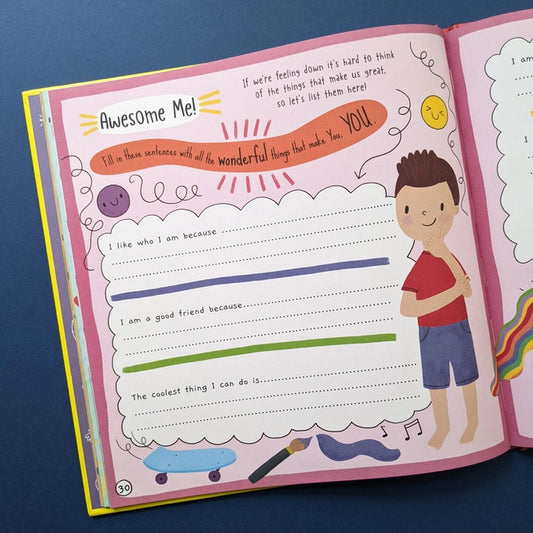 If we're feeling down it's hard to think
of the things that make us great,
so let's list them here!
Awesome Me!
Fill in these sentences with all the wonderful things that make You, YOU.
I like who I am because
I am a good friend because
The coolest thing I can do is
30
I am